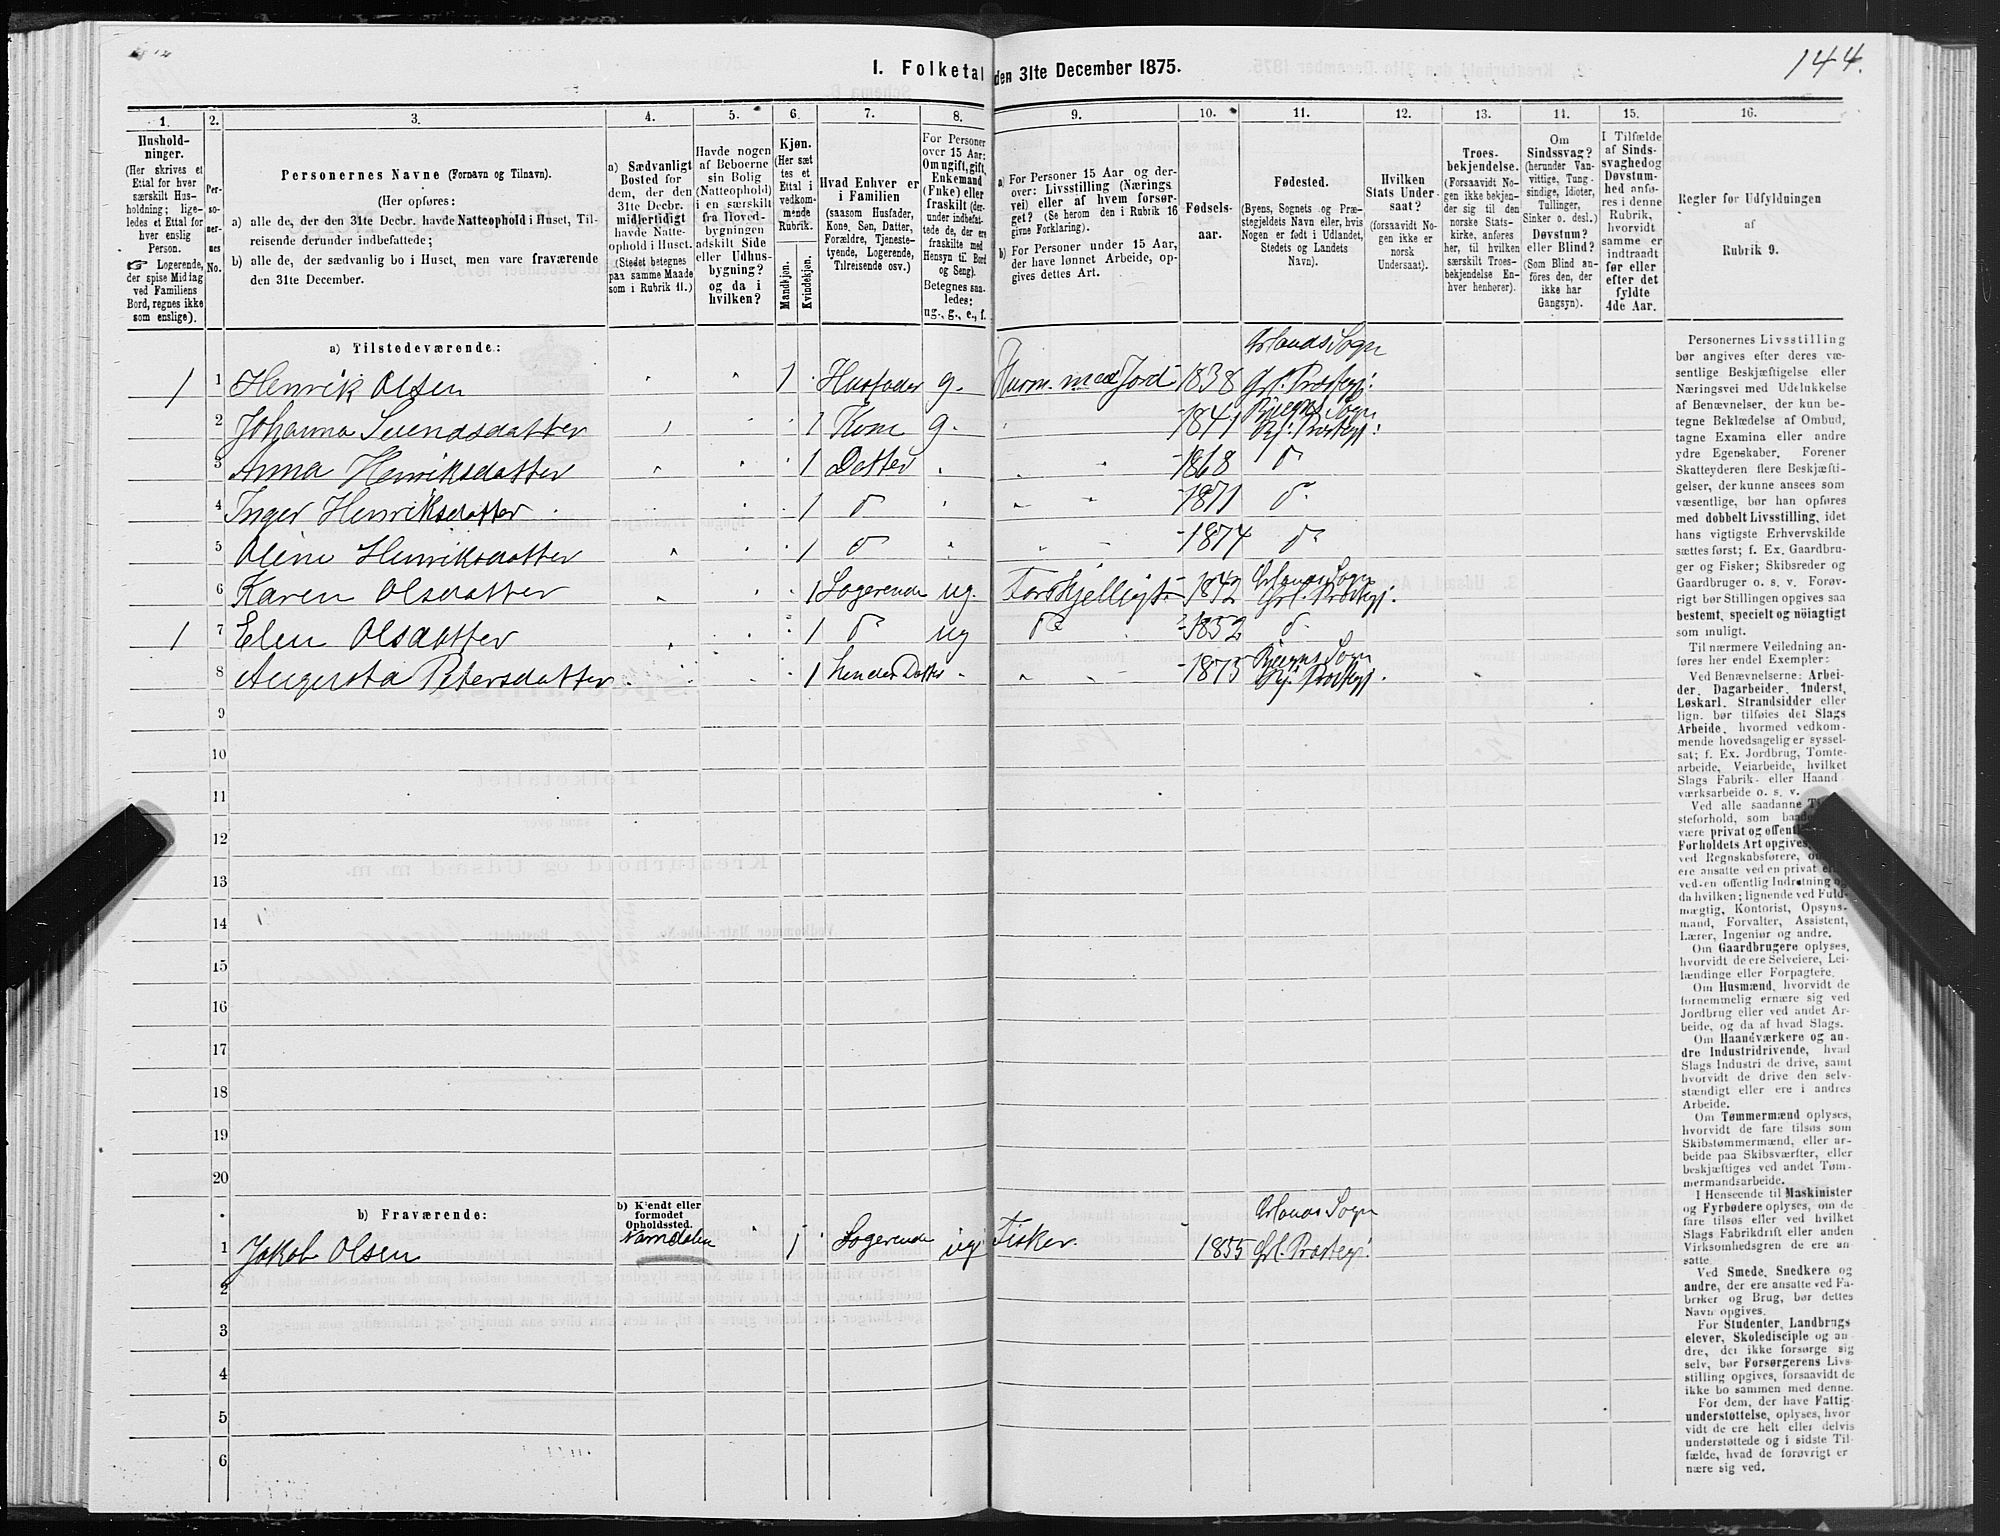 144.
I. Folketal den 31te December 1875.
1. 2. 3. 4. 5. 6. 7. 8. 9. 10. 11. 12. 13. 14. 15. 16.
Hushold-
ninger.
(Her skrives et
Ettal for hver
særskilt Hus-
holdning; lige-
ledes et Ettal for
hver enslig
Person.
☞ Logerende,
der spise Middag
ved Familiens
Bord, regnes ikke
som enslige).
Per-
so-
ner-
nes
No.
Personernes Navne (Fornavn og Tilnavn).
(Her opføres:
a) alle de, der den 31te Decbr. havde Natteophold i Huset, Til-
reisende derunder indbefattede;
b) alle de, der sædvanlig bo i Huset, men vare fraværende
den 31te December.
a) Sædvanligt
Bosted for
dem, der den
31te Decbr.
midlertidigt
havde Natte-
ophold i Huset.
(Stedet betegnes
paa samme Maade
som i Rubrik 11.)
Havde nogen
af Beboerne
sin Bolig
(Natteophold)
i en særskilt
fra Hoved-
bygningen
adskilt Side
eller Udhus-
bygning?
og da i
hvilken?
Kjøn.
(Her sæt
tes et
Ettal i
vedkom-
mende
Rubrik.
Mandkjøn.
Kvindekjøn.
Hvad Enhver er
i Familien
(saasom Husfader,
Kone, Søn, Datter,
Forældre, Tjeneste-
tyende, Logerende,
Tilreisende osv.)
For Personer
over 15 Aar:
Om ugift, gift,
Enkemand
(Enke) eller
fraskilt (der-
under indbefat-
tede de, der ere
fraskilte med
Hensyn til Bord
og Seng).
Betegnes saa-
ledes:
ug., g., e., f.
a) For Personer 15 Aar og der-
over: Livsstilling (Nærings
vei) eller af hvem forsør-
get? (Se herom den i Rubrik 16
givne Forklaring).
b) For Personer under 15 Aar,
der have lønnet Arbeide, op-
gives dettes Art.
Fødsels-
aar.
Fødested.
(Byens, Sognets og Præ-
stegjeldets Navn eller, hvis
Nogen er født i Udlandet,
Stedets og Landets
Navn).
Hvilken
Stats Under-
saat?
(forsaavidt No-
gen ikke er
norsk
Undersaat).
Troes-
bekjendelse.
(Forsaavidt No-
gen ikke bekjen-
der sig til den
norske Stats-
kirke, anføres
her, til hvilken
særskilt Troes-
bekjendelse En-
hver henhører).
Om
Sindssvag?
(herunder Van-
vittige, Tung-
sindige, Idioter,
Tullinger,
Sinker o. desl.)
Døvstum?
eller Blind?
(Som Blind an-
føres den, der
ikke har
Gangsyn).
I Tilfælde
af Sinds-
svaghed og
Døvstum-
hed anfø-
res i denne
Rubrik,
hvorvidt
samme er
indtraadt
før eller
efter det
fyldte
4de Aar.
Regler for Udfyldningen
af
Rubrik 9.
a) Tilstedeværende:
Ørlands Sogn
1 1 Henrik Olsen 1 Husfader g. Husm. med Jord 1838 Ørl. Præstegj:
Bjugns Sogn
2 Johanna Svendsdatter 1 Kone g. 1841 Bj. Præstegj:
3 Anna Henriksdatter 1 Datter 1868 do
4 Inger Henriksdatter 1 do 1871 do
5 Oline Henriksdatter 1 do 1874 do
Ørlands Sogn
6 Karen Olsdatter 1 Logerende ug. Forskjelligt 1842 Ørl. Præstegj.
1 7 Elen Olsdatter 1 do ug do 1852 do
Bjugns Sogn
8 Augusta Petersdatter 1 hendes Datter 1875 Bj. Præstegj.
9
10
11
12
13
14
15
16
17
18
19
20
b) Fraværende:
b) Kjendt eller
formodet
Opholdssted.
Ørlands Sogn
1 Jakob Olsen Namdalen 1 Logerende ug Fisker. 1855 Ørl. Præstegj.
2
3
4
5
6
Personernes Livsstilling
bør angives efter deres væ-
sentlige Beskjæftigelse eller
Næringsvei med Udelukkelse
af Benævnelser, der kun be-
tegne Beklædelse af Ombud,
tagne Examina eller andre
ydre Egenskaber. Forener
Skatteyderen flere Beskjæfti-
gelser, der kunne ansees som
væsentlige, bør han opføres
med dobbelt Livsstilling, idet
hans vigtigste Erhvervskilde
sættes først; f. Ex. Gaardbru-
ger og Fisker; Skibsreder og
Gaardbruger o. s. v. Forøv-
rigt bør Stillingen opgives saa
bestemt, specielt og nöiagtigt
som muligt.
Til nærmere Veiledning an-
føres her endel Exempler:
Ved Benævnelserne: Arbei-
der, Dagarbeider, Inderst,
Løskarl, Strandsidder eller
lign. bør tilføies det Slags
Arbeide, hvormed vedkom-
mende hovedsagelig er syssel-
sat; f. Ex. Jordbrug, Tomte-
arbeide, Veiarbeide, hvilket
Slags Fabrik- eller Haand
værksarbeide o. s. v.
Ved alle saadanne
steforhold, som
være privat og
Forholdets Art opgives,
ved Regnskabsførere,
ere ansatte ved en privat
ved en offentlig Indretning og
da hvilken; lignende ved Fuld-
mægtig, Kontorist, Opsyns-
mand, Forvalter, Assistent,
Lærer, Ingeniør og andre.
Om Gaardbrugere oplyses,
hvorvidt de ere Selveiere, Lei-
lændinge eller Forpagtere.
Om Husmænd, hvorvidt de
fornemmelig ernære sig ved
Jordbrug eller ved andet Ar-
beide, og da af hvad Slags.
Om Haandværkere og an-
dre Industridrivende, hvad
Slags Industri de drive, samt
hvorvidt de drive den selv-
stændigt eller ere i andres
Arbeide.
Om Tømmermænd oplyses,
hvorvidt de fare tilsøs som
Skibstømmermænd, eller ar-
beide paa Skibsværfter, eller
beskjæftiges ved andet Tøm-
mermandsarbeide.
I Henseende til Maskinister
og Fyrbødere oplyses, om de
fare tilsøs eller ved hvilket
Slags Fabrikdrift eller anden
Virksomhedsgren de ere an-
satte.
Ved Smede, Snedkere og
andre, der ere ansatte ved Fa-
briker og Brug, bør dettes
Navn opgives.
For Studenter, Landbrugs
elever, Skoledisciple og an-
dre, der ikke forsørge sig
selv, bør Forsørgerens Livs-
stilling opgives, forsaavidt de
ikke bo sammen med denne.
For dem, der have Fattig-
understøttelse, oplyses, hvor
vidt de ere helt eller delvis
understøttede og i sidste Til-
fælde, hvad de forøvrigt er
nære sig ved.